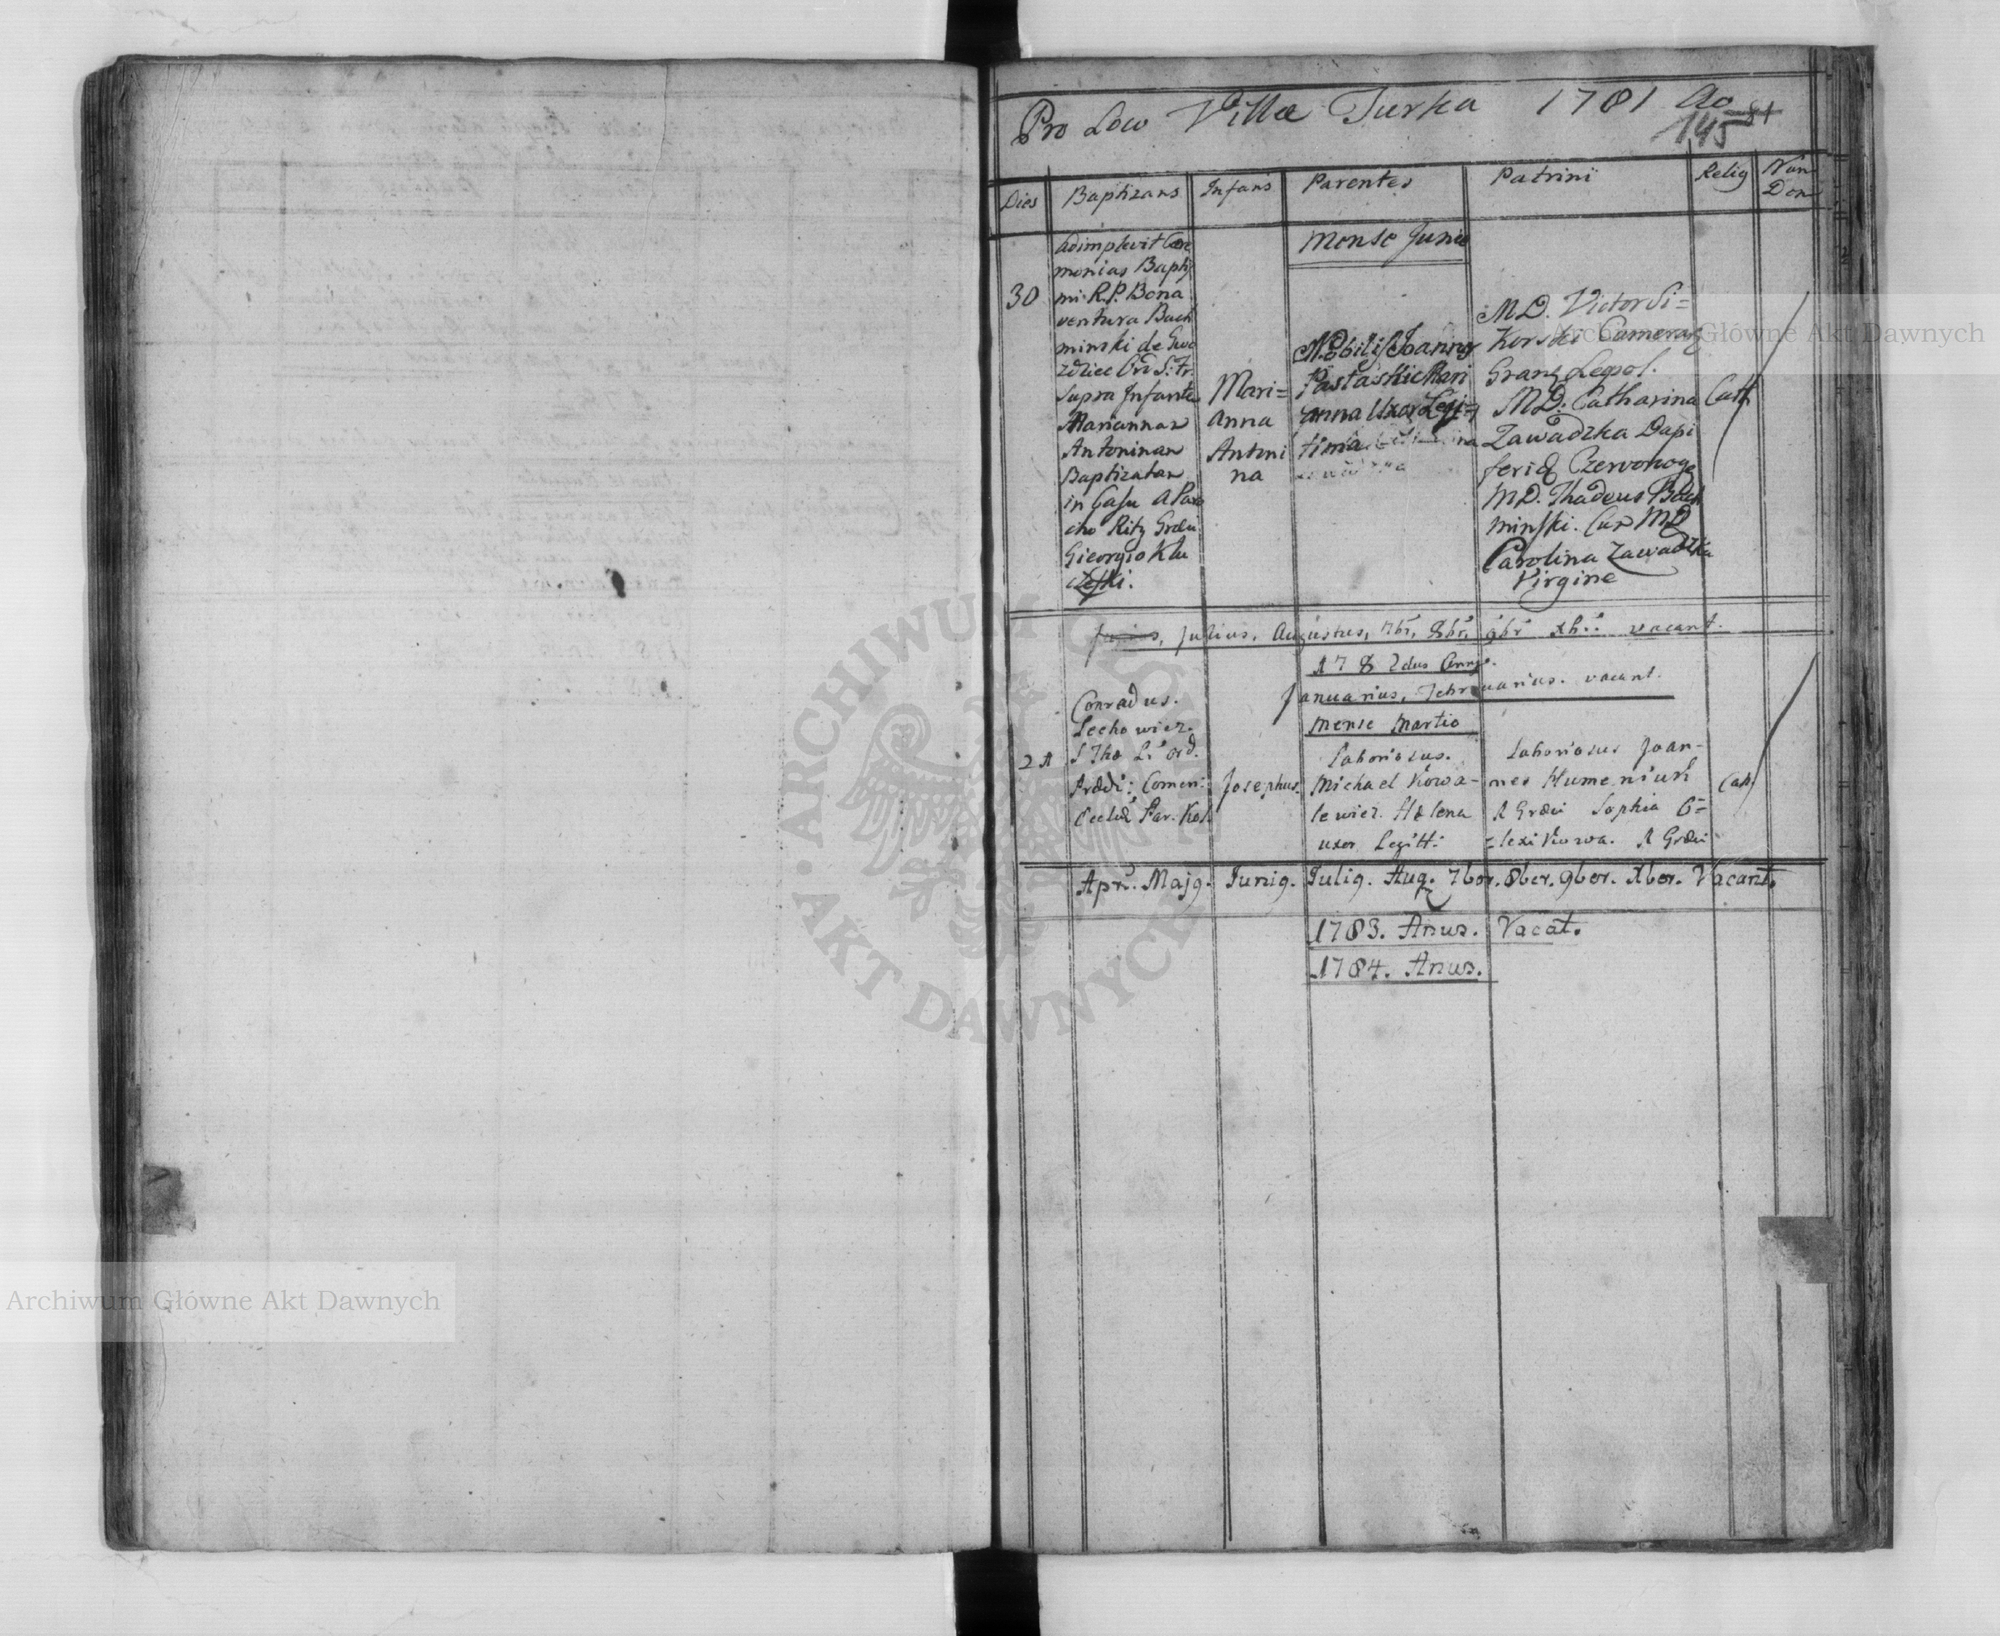 Pro Low Villa Turka 1781 Ao
145
Dies
Baptizans
Infans
Parentes
Patrini
Relig
Num
Dom
Mense Junio
30
adimplevit Cære
monias Baptis
mi R.P. Bona
ventura Bach
minski de Gwo
zdziec Ord S. Fr.
Supra Infante
Mariannam
Antoninam
Baptizatam
in Casu A Paro
cho Ritg Græci
Gieorgio Klu
Mari=
anna
Antoni
na
Nobilis Joannes
Pastaskie Mari
anna Uxor Legi=
tima
M.D. Victor Si=
Korski Camerarg
Granz Leopol.
M.D. Catharina
Zawadzka Dapi
Czerwonog
M.D. Thadeus Bach
minski. Cum M.D
Carolina Zawadzka
Virgine
Cath
Junius, Julius, Augustus, 7br, 8br, 9br Xbr vacant.
1782dus Anng.
Januarius, Februarius. vacant.
Mense Martio
21
Conradus.
Lechowicz.
S Thæ Li ord.
Prædi: Comen:
Eccliæ Par. Kol.
Josephus.
Laboriosus.
Michael Kowa-
lewicz. Helena
uxor Legitt:
Laboriosus Joan-
nes Humeniuk
R Græci Sophia O=
=lexikowa. R Græci
Cath
Apr. Majg. Junig. Julig. Aug. 7ber. 8ber. 9ber. Xber. Vacant.
1783. Anus. Vacat.
1784. Anus.
Archiwum Główne Akt Dawnych
Archiwum Główne Akt Dawnych
ARCHIWUM GŁÓWNE
AKT DAWNYCH